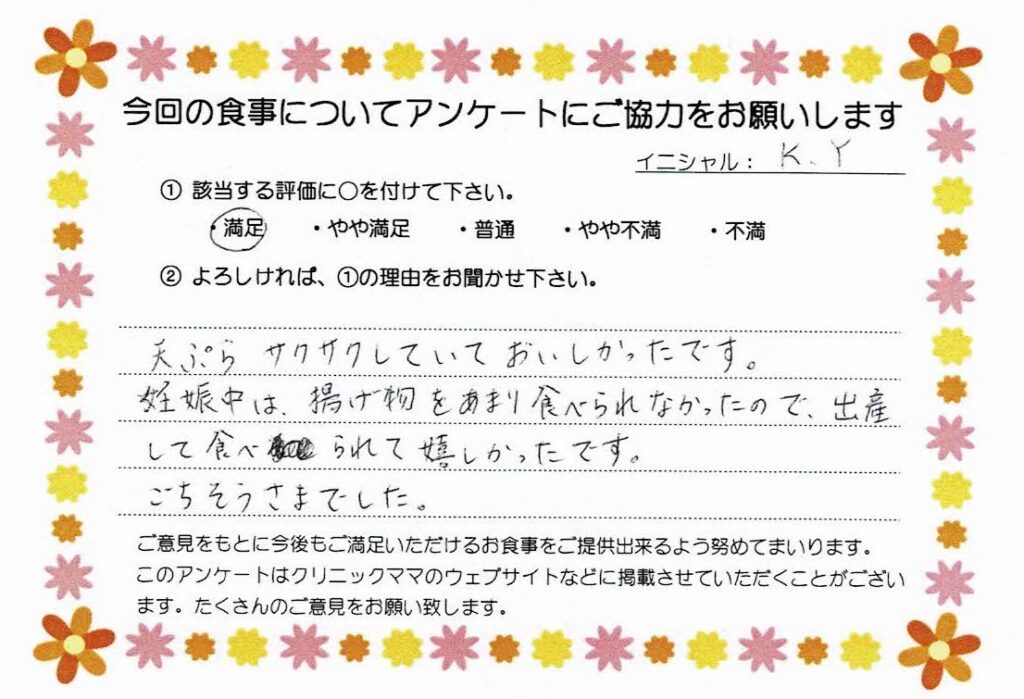 今回の食事についてアンケートにご協力をお願いします
イニシャル： K.Y
① 該当する評価に○を付けて下さい。
・満足 ・やや満足 ・普通 ・やや不満 ・不満
② よろしければ、①の理由をお聞かせ下さい。
天ぷら サクサクしていておいしかったです。
妊娠中は、揚げ物をあまり食べられなかったので、出産
して食べられて嬉しかったです。
ごちそうさまでした。
ご意見をもとに今後もご満足いただけるお食事をご提供出来るよう努めてまいります。
このアンケートはクリニックママのウェブサイトなどに掲載させていただくことがござい
ます。たくさんのご意見をお願い致します。